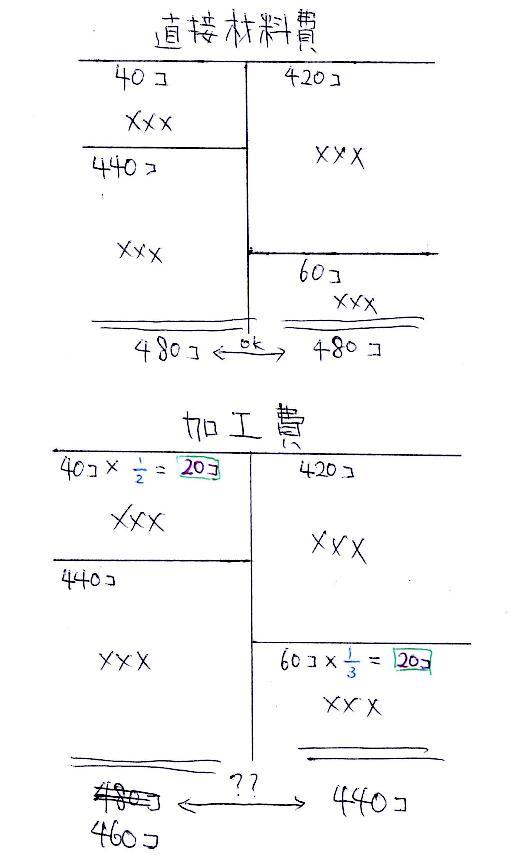 直接材料費
40コ 420コ
XXX
440コ XXX
XXX
60コ
XXX
480コ ok 480コ
加工費
40コ × 1/2 = 20コ 420コ
XXX
XXX
440コ
XXX 60コ × 1/3 = 20コ
XXX
480コ ?? 440コ
460コ